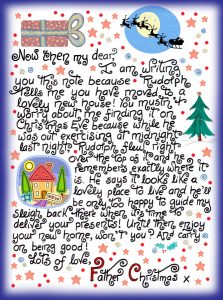 Now then my dear,
I am writing
you this note because Rudolph
tells me you have moved to a
lovely new house! You mustn't
worry about me finding it on
Christmas Eve because while he
was out exercising at midnight
last night Rudolph flew right
over the top of it and he
remembers exactly where it
is. He says it looks like a
lovely place to live and he'll
be only too happy to guide my
sleigh back there when it's time to
deliver your presents! Until then enjoy
your new home, won't you? And carry
on being good!
Lots of love,
Father Christmas x